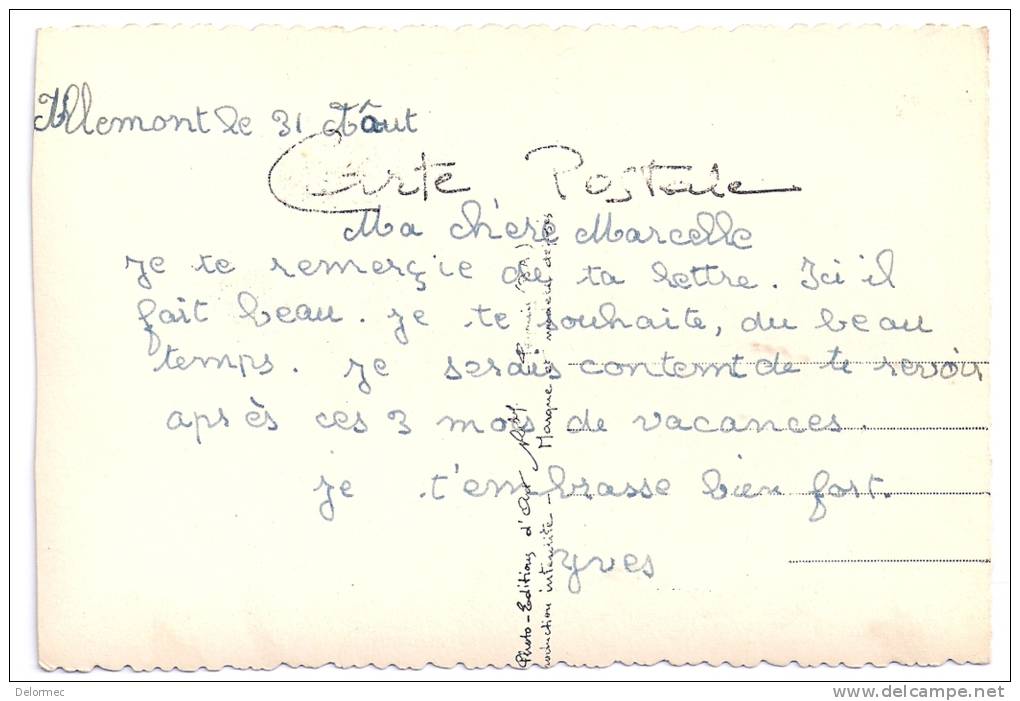 Allemont le 31 Août
Carte Postale
Ma chère Marcelle
je te remerçie de ta lettre. Ici il
fait beau. je te souhaite, du beau
temps. je serais contemt de te revoir
après ces 3 mois de vacances.
je t'embrasse bien fort.
Yves
Photo-Editions d'Art
Reproduction interdite - Marque et modèle déposés
Delormec
www.delcampe.net